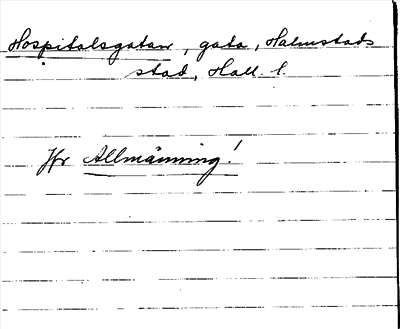 Hospitalsgatan, gata, Halmstads
stad, Hall. l.
Jfr Allmänning!